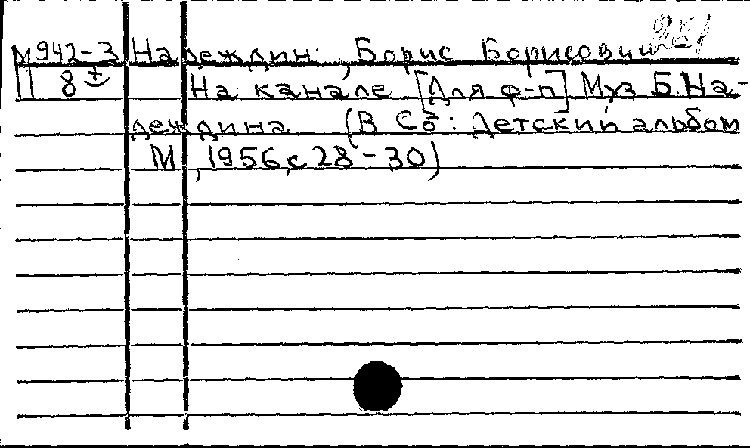 М942-3 Надеждин, Борис Борисович
11 8 На канале [Для ф-п] Муз Б. На-
деждина (В сб: Детский альбом
М, 1956, с 28-30)